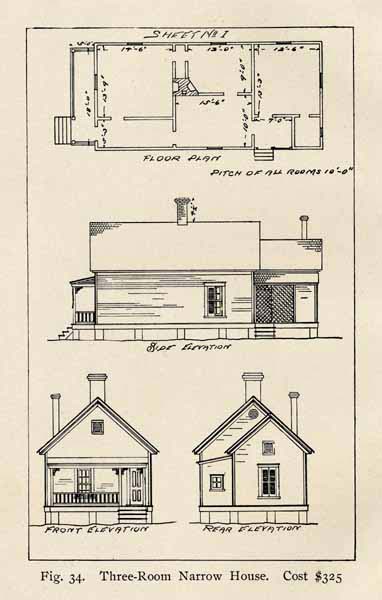 SHEET No I
5'-0"
14'-6"
13'-0"
12'-6"
15'-6"
7'-0"
FLOOR PLAN
PITCH OF ALL ROOMS 10'-0"
SIDE ELEVATION
FRONT ELEVATION
REAR ELEVATION
Fig. 34. Three-Room Narrow House. Cost $325